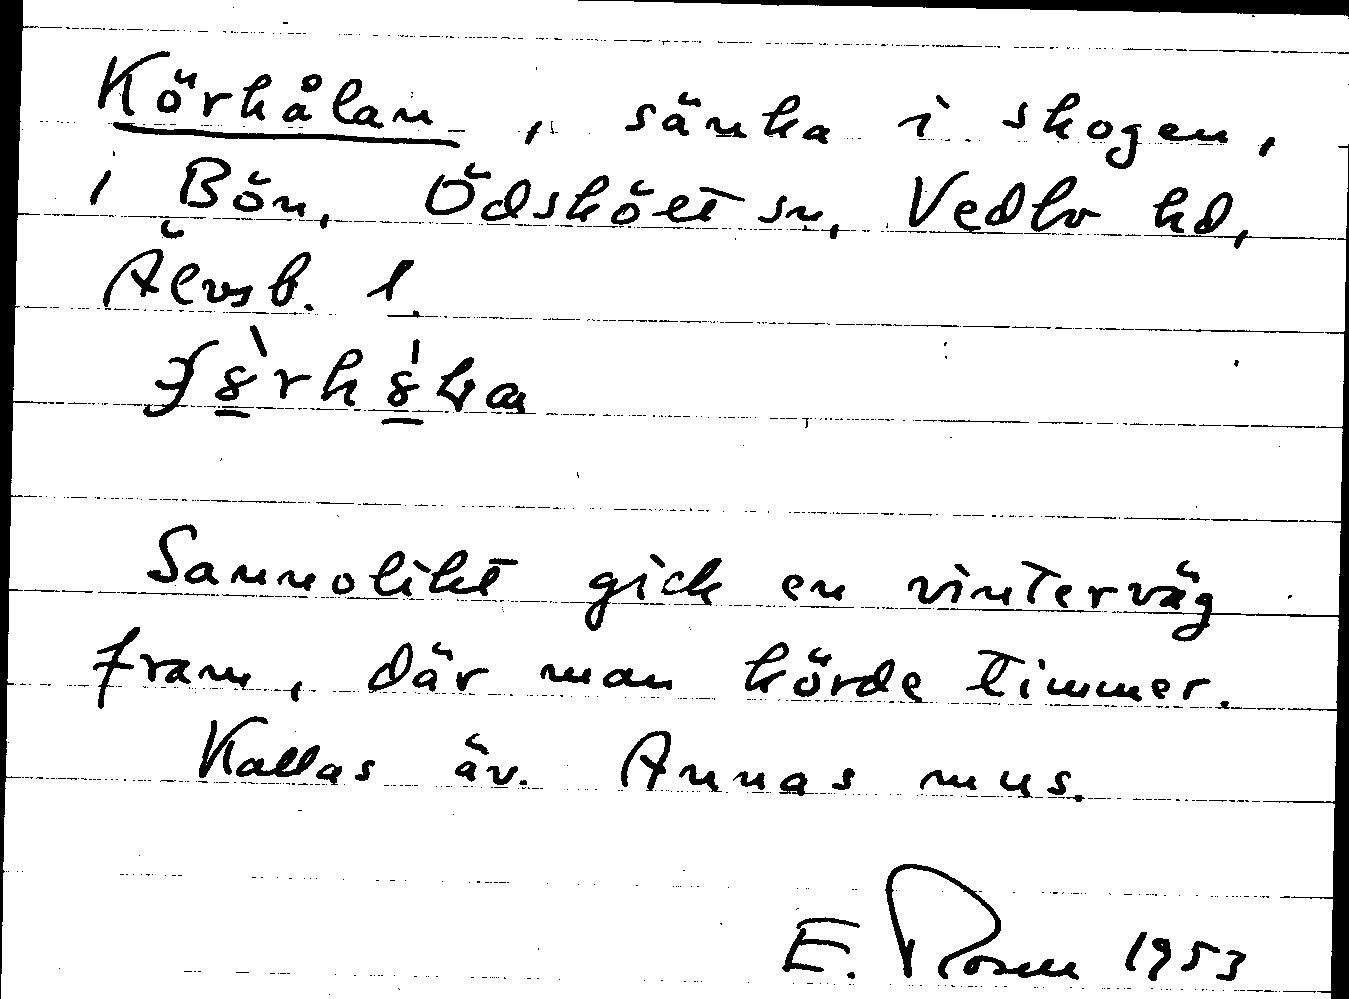 Körhålan, sänka i skogen,
i Bön, Ödsköлt sn, Vedbo hd,
Älvsb. l.
Sannolikt gick en vinterväg
fram, där man körde timmer.
Kallas äv. Annas mus.
E. Rosen 1953